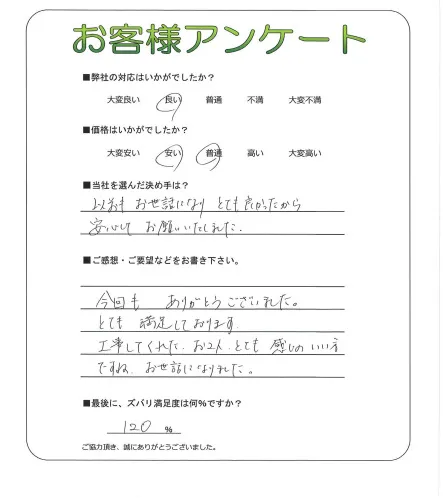 お客様アンケート
■弊社の対応はいかがでしたか?
大変良い 良い 普通 不満 大変不満
■価格はいかがでしたか?
大変安い 安い 普通 高い 大変高い
■当社を選んだ決め手は?
以前も お世話になり とても良かったから
安心して お願いいたしました.
■ご感想・ご要望などをお書き下さい。
今回も ありがとうございました。
とても 満足しております.
工事してくれた、お2人、とても 感じのいい方
ですね、お世話になりました。
■最後に、ズバリ満足度は何%ですか?
120 %
ご協力頂き、誠にありがとうございました。